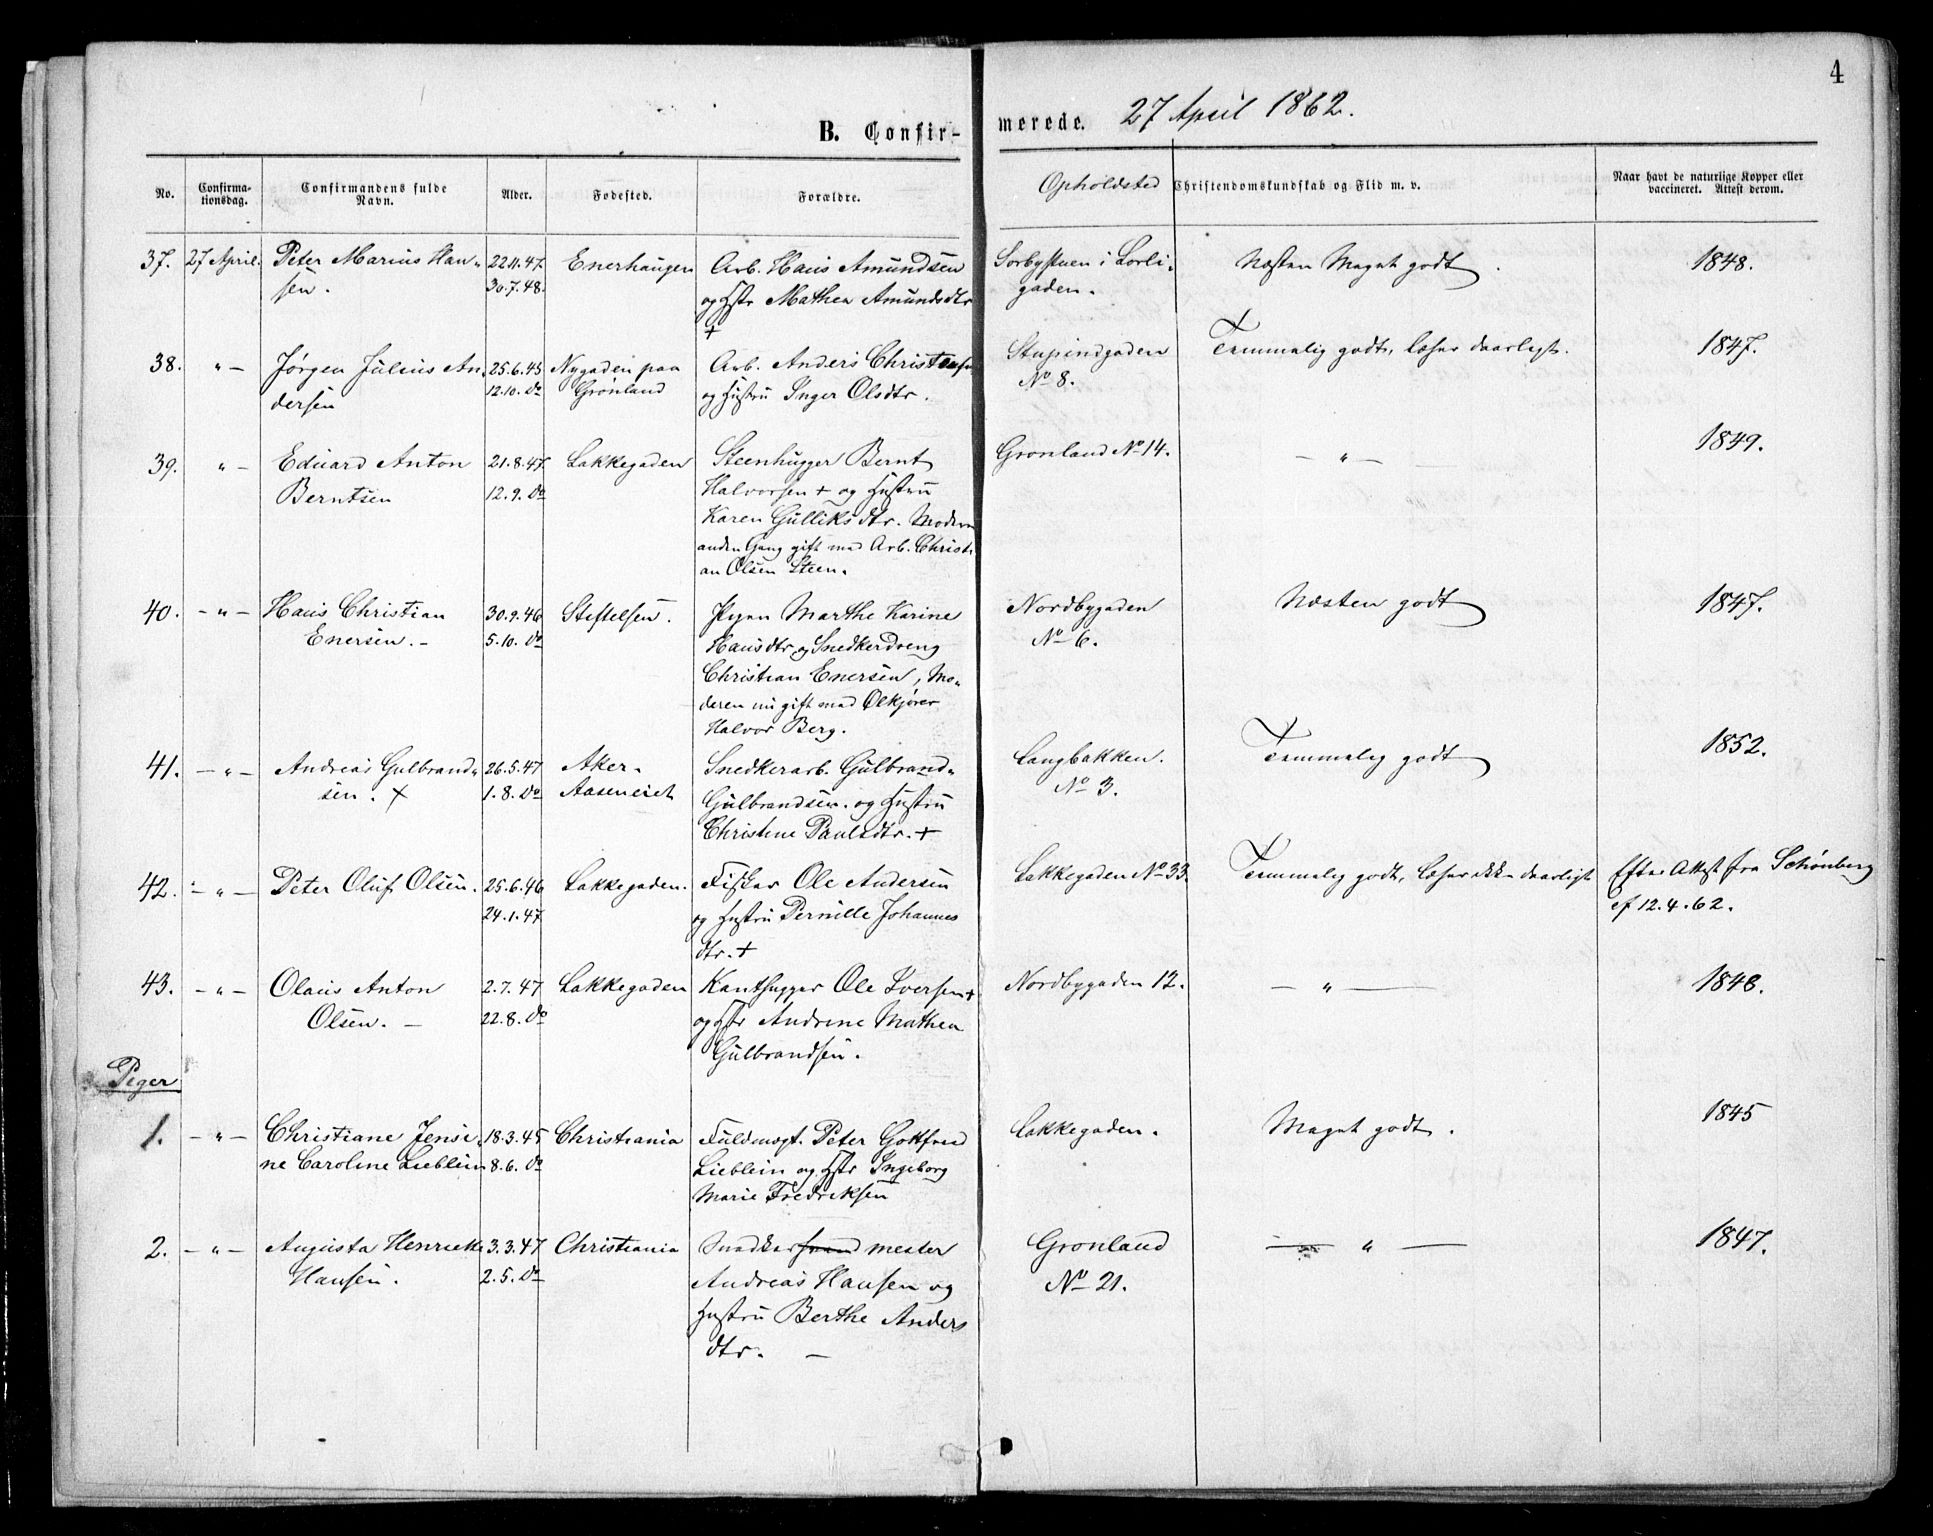 4
B. Confirmerede. 27 April 1862.
No. Confirmationsdag. Confirmandens fulde Navn. Alder. Fødested. Forældre. Opholdsted Christendomskundskab og Flid m. v. Naar havt de naturlige Kopper eller vaccineret. Attest derom.
37. 27 April. Peter Marius Han- 22.11.47. Enerhaugen Arb. Hans Amundsen Sorbystuen i Lorti- Næsten Meget godt. 1848.
sen. 30.7.48. og Hstr Mathea Amundsdtr gaden.
+
38. " Jørgen Julius An- 25.6.45 Nygaden paa Arb. Anders Christensen Stupindgaden Temmelig godt, læser daarligt. 1847.
dersen 12.10. Do Grønland og Hustru Inger Olsdtr. No 8.
39. " Eduard Anton 21.8.47. Lakkegaden Steenhugger Bernt Grønland No 14. — " — 1849.
Berntsen 12.9. Do Halvorsen + og Hustru
Karen Gulliksdtr. Moderen
anden Gang gift med Arb. Christi-
an Olsen Steen.
40. — " — Hans Christian 30.9.46 Stiftelsen. Pigen Marthe Karine Nordbygaden Næsten godt 1847.
Enersen. — 5.10. Do Hansdtr og Snedkerdreng No 6.
Christian Enersen, Mo-
deren nu gift med Ølkjører
Halvor Berg.
41. — " — Andreas Gulbrand- 26.5.47 Aker- Snedkerarb. Gulbrand- Langbakken. Temmelig godt 1852.
sen. + 1.8. Do Aaseneiet Gulbrandsen. og Hustru No 3.
Christine Paulsdtr. +
42. — " — Peter Oluf Olsen. 25.6.46 Lakkegaden. Fisker Ole Andersen Lakkegaden No 33. Temmelig godt, læser ikke daarligt Efter Attest fra Schønberg
24.1.47 og Hustru Pernille Johannes ef 12.4.62.
dtr. +
43. — " — Olaus Anton 2.7.47 Lakkegaden Kanthugger Ole Iversen + Nordbygaden 12. — " — 1848.
Olsen. — 22.8. Do og Hstr Andrine Mathea
Gulbrandsen.
Piger
1. — " — Christiane Jensi- 18.3.45 Christiania Fuldmægt. Peter Gottfred Lakkegaden. Meget godt. 1845
ne Caroline Lieblein 8.6. Do Lieblein og Hstr Ingeborg
Marie Fredriksen
2. — " — Augusta Henriette 3.3.47 Christiania Snedkersvend mester Grønland — " — 1847.
Hansen. 2.5. Do Andreas Hansen og No 21.
Hustru Berthe Anders
dtr. —